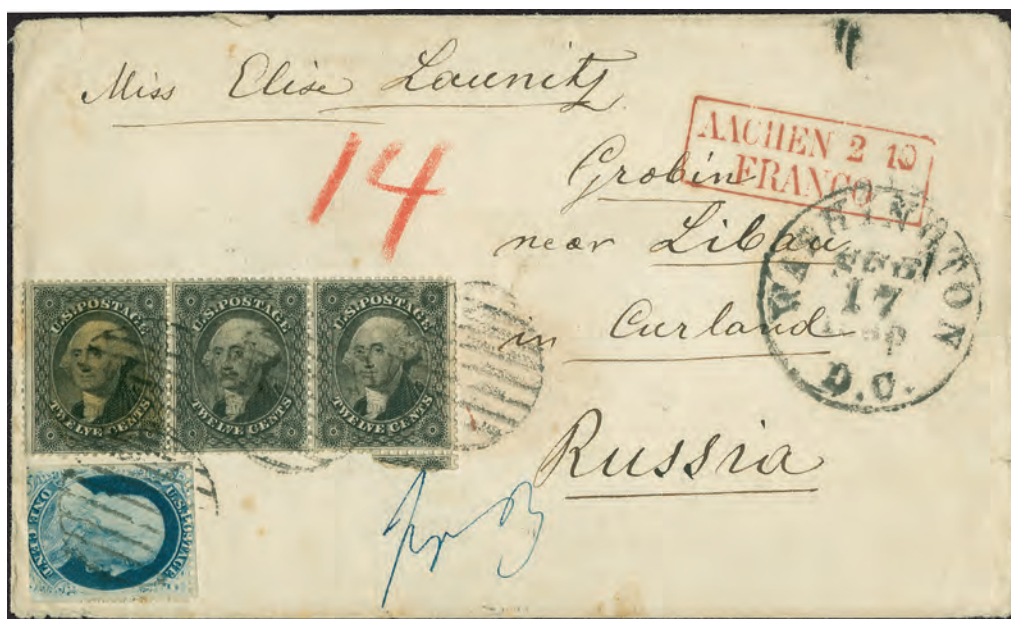 Miss Elise Launitz
14
AACHEN 2 10
FRANCO
Grobin
near Libau
in Curland
Russia
WASHINGTON
17
D.C.
U.S. POSTAGE
TWELVE CENTS
U.S. POSTAGE
TWELVE CENTS
U.S. POSTAGE
TWELVE CENTS
U.S. POSTAGE
ONE CENT